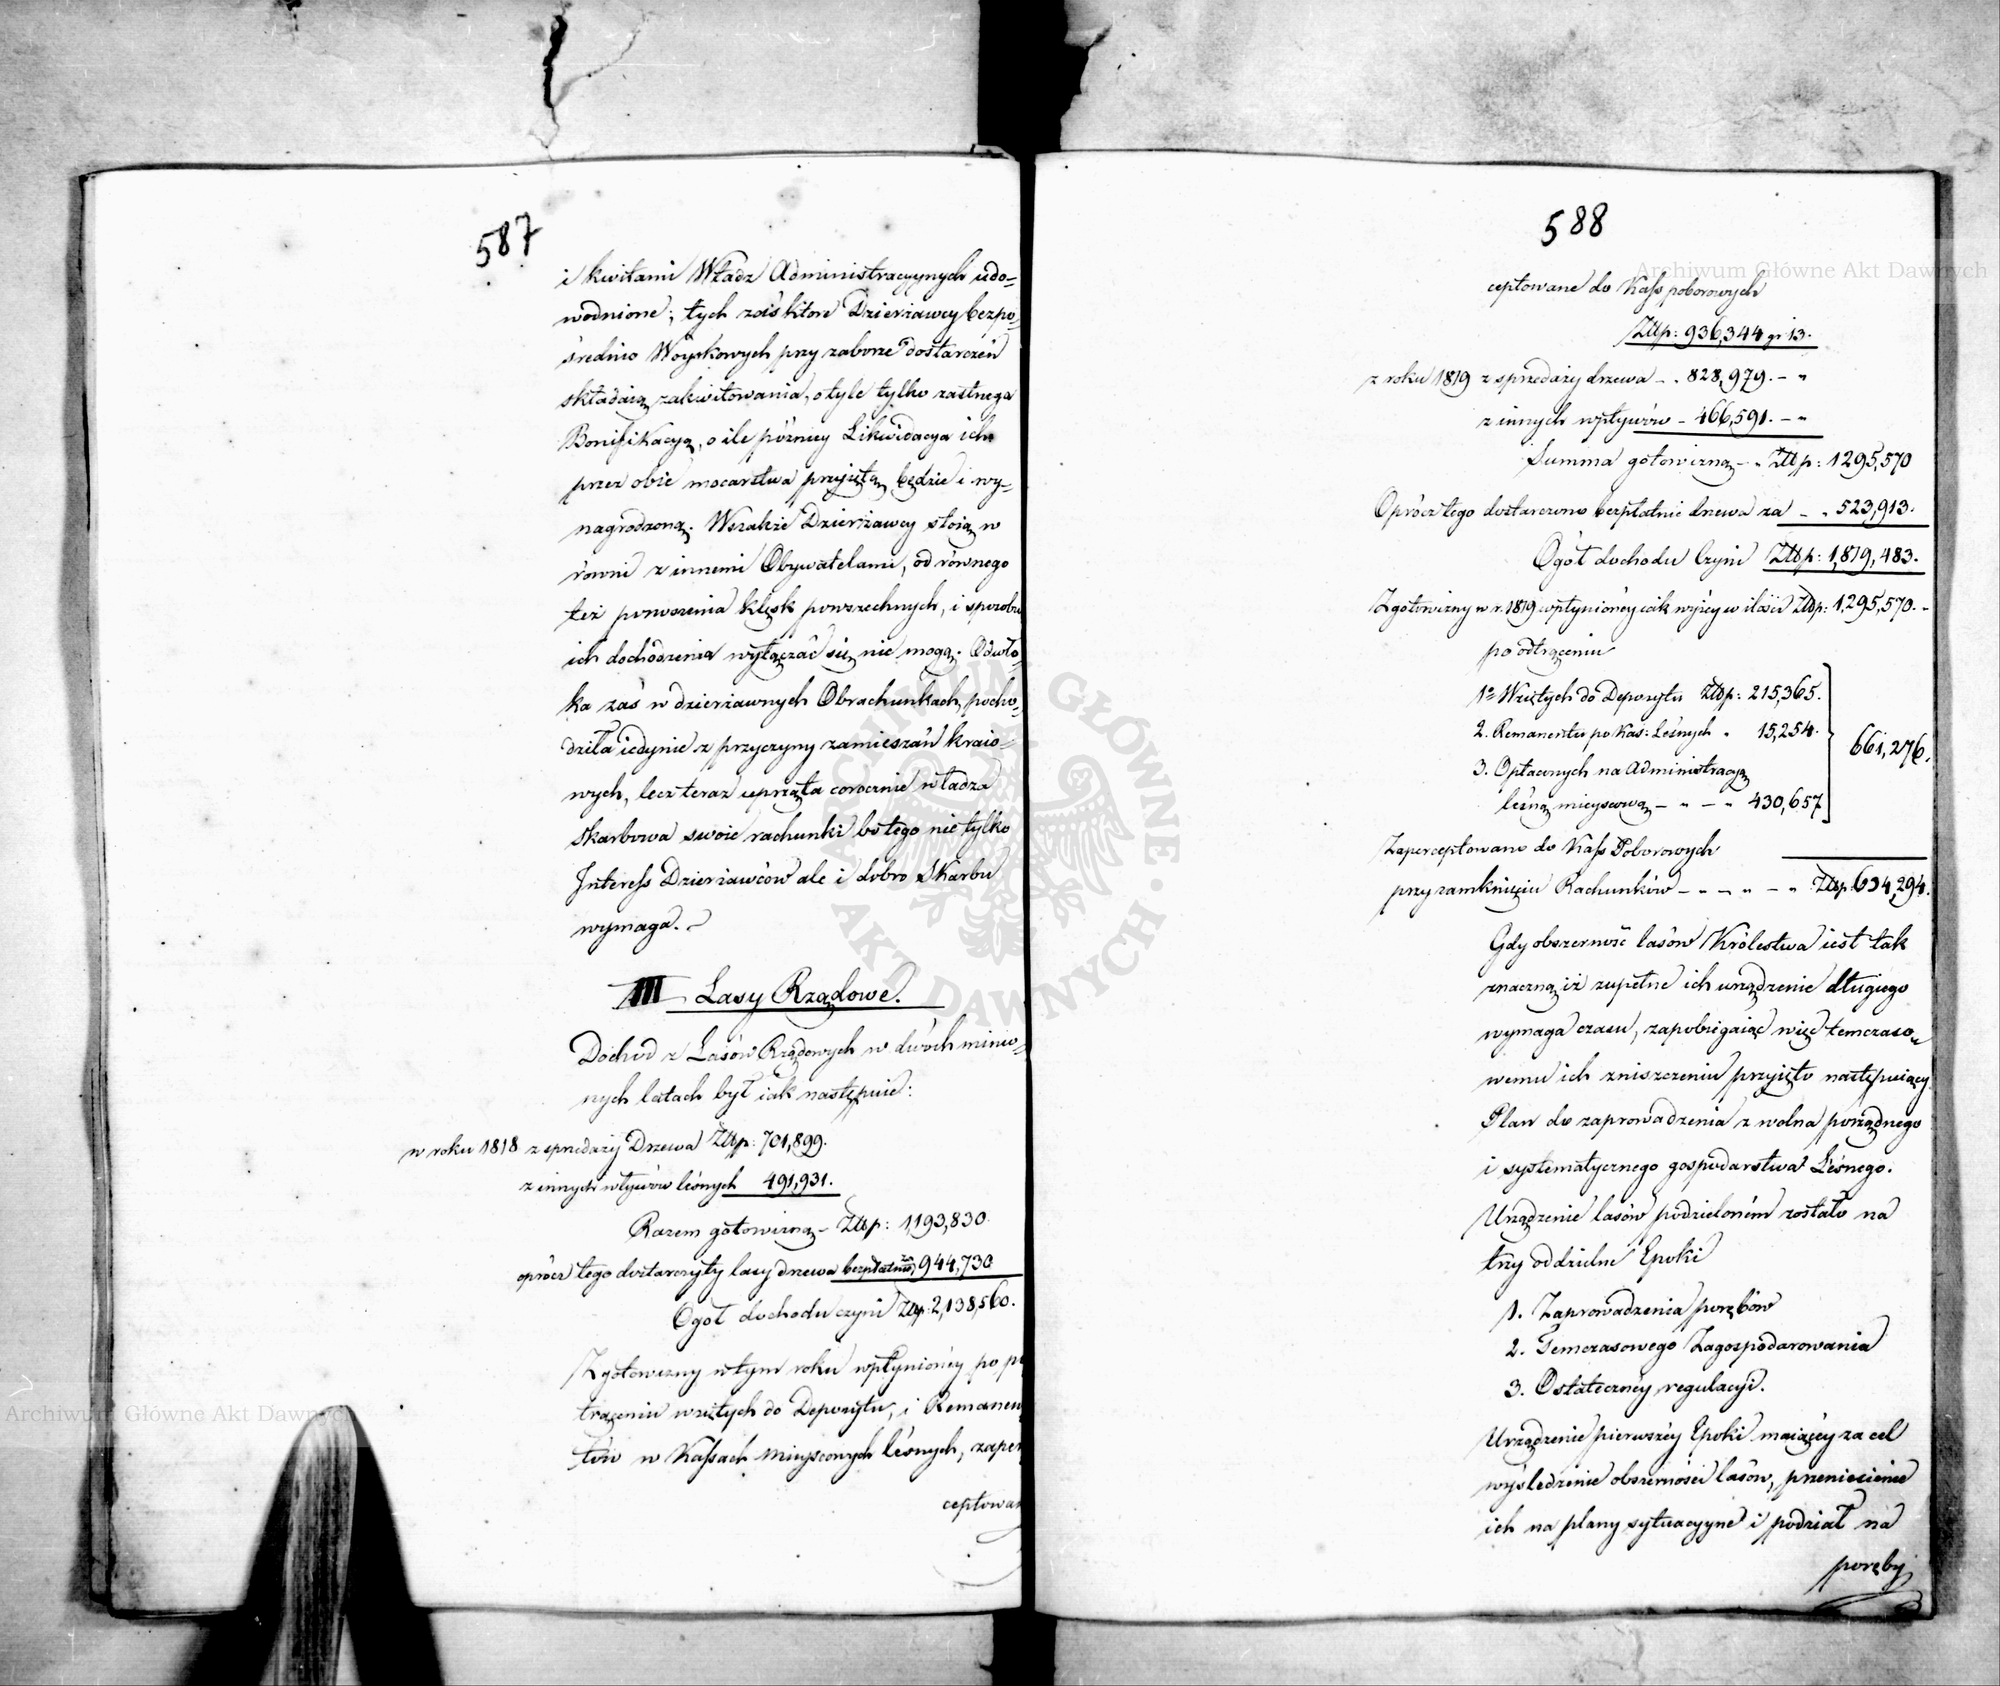 587
i kwitami Władz Administracyynych udo=
wodnione; tych zaś które Dzierżawcy bezpo=
średnio Woyskowych przy zaborze dostarczeń
składaią zakwitowania, o tyle tylko zastnega
Bonifikacyą, o ile późniey Likwidacya ich
przez obie mocarstwa przyiętą będzie i wy=
nagrodzoną. Wszakże Dzierżawcy stoią w
równi z innemi Obywatelami, od równego
też ponoszenia klęsk powszechnych, i sposobu
ich dochodzenia wyłączać się nie mogą. Odwło=
ka zaś w dzierżawnych Obrachunkach, pocho=
dziła iedynie z przyczyny zamieszań kraio=
wych, lecz teraz uprząta corocznie władza
Skarbowa swoie rachunki bo tego nie tylko
Interess Dzierżawców ale i dobro Skarbu
wymaga.
III Lasy Rządowe.
Dochód z Lasów Rządowych w dwóch minio=
nych latach był iak następuie:
w roku 1818 z sprzedaży Drzewa Złłp: 701,899.
z innych wpływów leśnych 491,931.
Razem gotowizną – Złłp: 1,193,830.
oprócz tego dostarczyły lasy drzewa bezpłatnie za 944,730
Ogół dochodu czyni Złłp: 2,138,560.
Z gotowizny w tym roku wpłynionéy po po
trąceniu wziętych do Depozytu, i Remanen
tów w Kassach mieyscowych leśnych, zaper
ceptowan
588
ceptowane do Kass poborowych
Złłp: 936,344 gr 13.
z roku 1819 z sprzedaży drzewa – „ 828,979. – „
z innych wpływów – 466,591. – „
Summa gotowizną – „ Złłp: 1295,570
Oprócz tego dostarczono bezpłatnie drzewa za – „ 523,913.
Ogół dochodu Czyni Złłp: 1,819,483.
Z gotowizny w r. 1819 wpłynionéy iak wyżéy w ilości Złłp: 1,295,570. –
po odtrąceniu
1º Wziętych do Depozytu Złłp: 215,365.
2. Remanentu po Kas: Leśnych „ 15,254.
661,276.
3. Opłaconych na Administracyą
leśną mieyscową – „ – „ 430,657
Zaperceptowano do Kass Poborowych
przy zamknięciu Rachunków – „ – „ – „ Złłp: 634,294.
Gdy obszerność lasów Królestwa iest tak
znaczną iż zupełne ich urządzenie długiego
wymaga czasu, zapobiegaiąc więc temczaso=
wemu ich zniszczeniu przyięto następuiący
Plan do zaprowadzenia z wolna porządnego
i systematycznego gospodarstwa Leśnego.
Urządzenie lasów podzieloném zostało na
trzy oddzielne Epoki
1. Zaprowadzenia porębów
2. Temczasowego Zagospodarowania
3. Ostatecznéy regulacyi.
Urządzenie pierwszéy Epoki maiącéy za cel
wyśledzenie obszerności lasów, przeniesienie
ich na plany sytuacyyne i podział na
poręby
Archiwum Główne Akt Dawnych
Archiwum Główne Akt Dawnych
ARCHIWUM GŁÓWNE AKT DAWNYCH